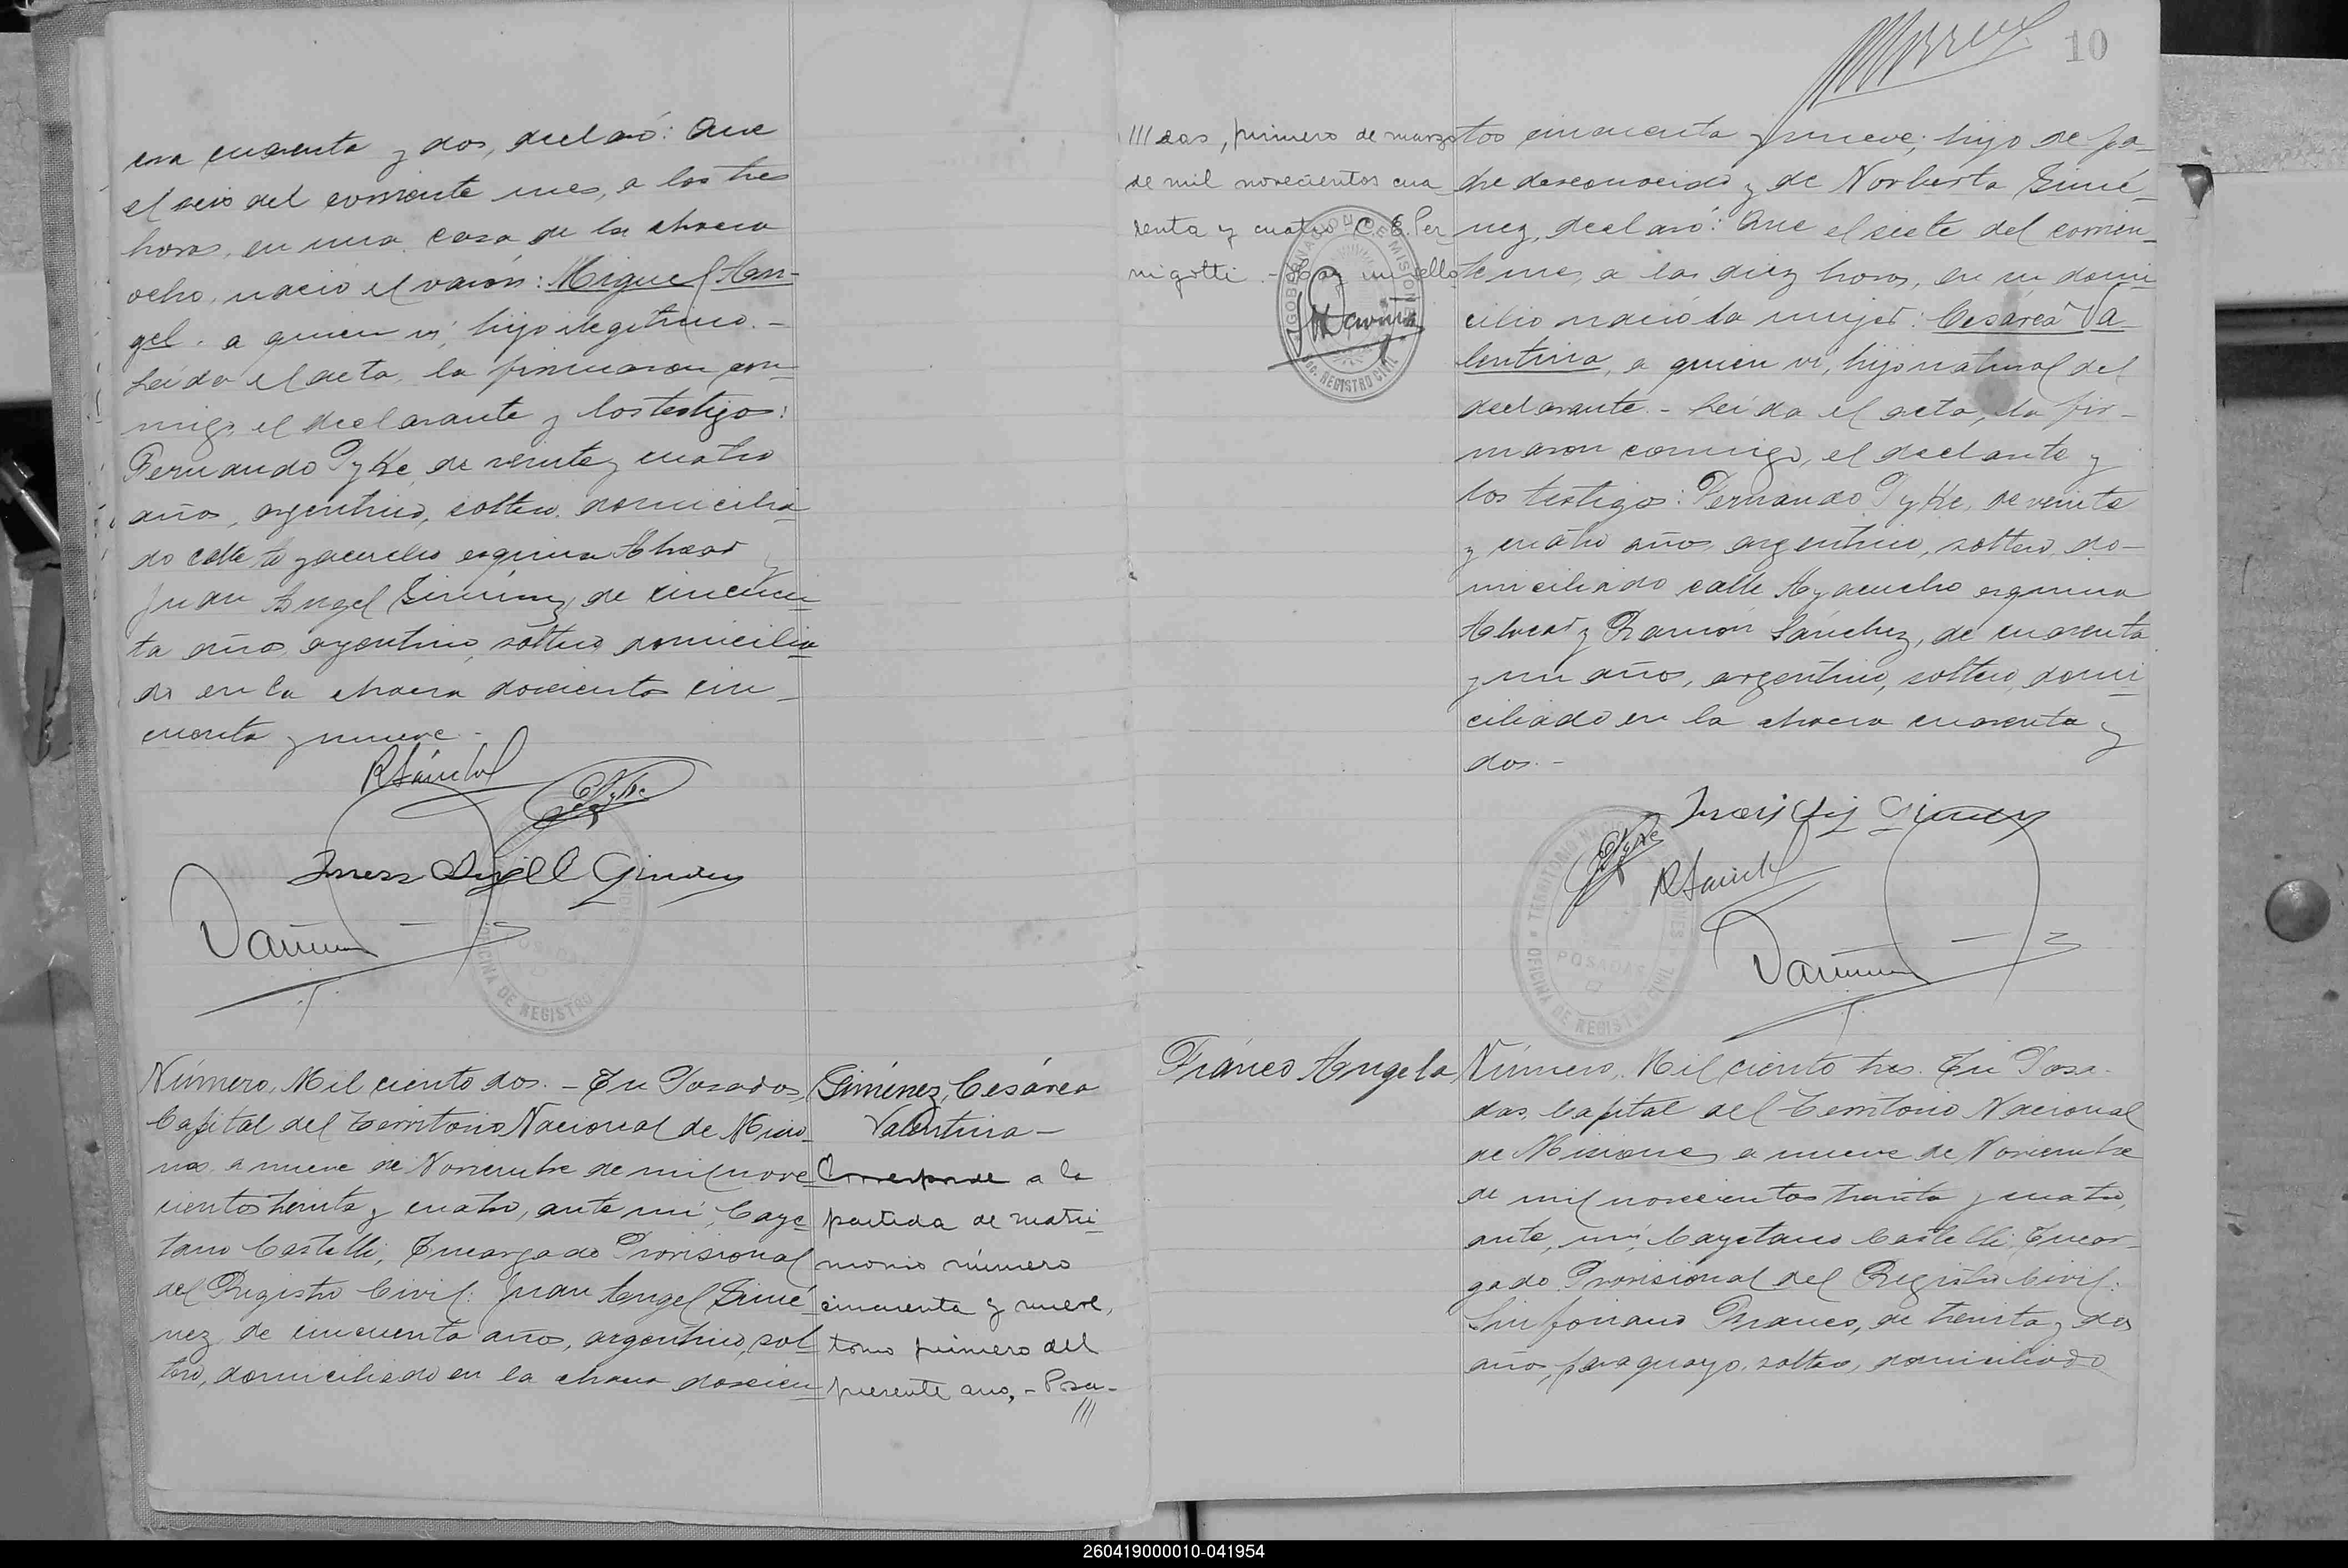 cra cuarenta y dos, declaró: Que
el seis del corriente mes, a las tres
horas, en una casa de la chacra
ocho, nació el varón: Miguel An-
gel, a quien ví, hijo ilegítimo.-
Leída el acta, la firmaron con-
migo, el declarante y los testigos:
Fernando Tyke, de veinte y cuatro
años, argentino, soltero, domicilia-
do calle Ayacucho esquina Alvear y
Juan Angel Giménez, de cincuen-
ta años, argentino, soltero, domicilia-
do en la chacra doscientos cin-
cuenta y nueve.-
RSánchez
Número, Mil ciento dos.- En Posadas,
Capital del Territorio Nacional de Misio-
nes, a nueve de Noviembre de mil nove-
cientos treinta y cuatro, ante mí, Caye-
tano Castelli, Encargado Provisional
del Registro Civil: Juan Angel Gimé-
nez, de cincuenta años, argentino, sol-
tero, domiciliado en la chacra doscien-
Giménez, Cesárea
Valentina-
Corresponde a la
partida de matri-
monio número
cincuenta y nueve,
tomo primero del
presente año,- Posa-
///
10
///das, primero de marzo
de mil novecientos cua-
renta y cuatro. C. E. Per-
nigotti.- Hay un sello
GOBERNACION DE MISIONES
REGISTRO CIVIL
tos cincuenta y nueve, hijo de pa-
dre desconocido y de Norberta Gimé-
nez, declaró: Que el siete del corrien-
te mes, a las diez horas, en su domi-
cilio nació la mujer: Cesárea Va-
lentina, a quien ví, hijo natural del
declarante.- Leída el acta, la fir-
maron conmigo, el declante y
los testigos: Fernando Tyke, de veinte
y cuatro años, argentino, soltero, do-
miciliado calle Ayacucho esquina
Alvear y Ramón Sánchez, de cuarenta
y un años, argentino, soltero, domi-
ciliado en la chacra cuarenta y
dos.-
RSánchez
TERRITORIO NACIONAL MISIONES
POSADAS
OFICINA DE REGISTRO CIVIL
Fránco Angela
Número, Mil ciento tres. En Posa-
das, Capital del Territorio Nacional
de Misiones, a nueve de Noviembre
de mil novecientos treinta y cuatro,
ante, mí, Cayetano Castelli, Encar-
gado Provisional del Registro Civil:
Sinforiano Franco, de treinta y dos
años, paraguayo, soltero, domiciliado
260419000010-041954